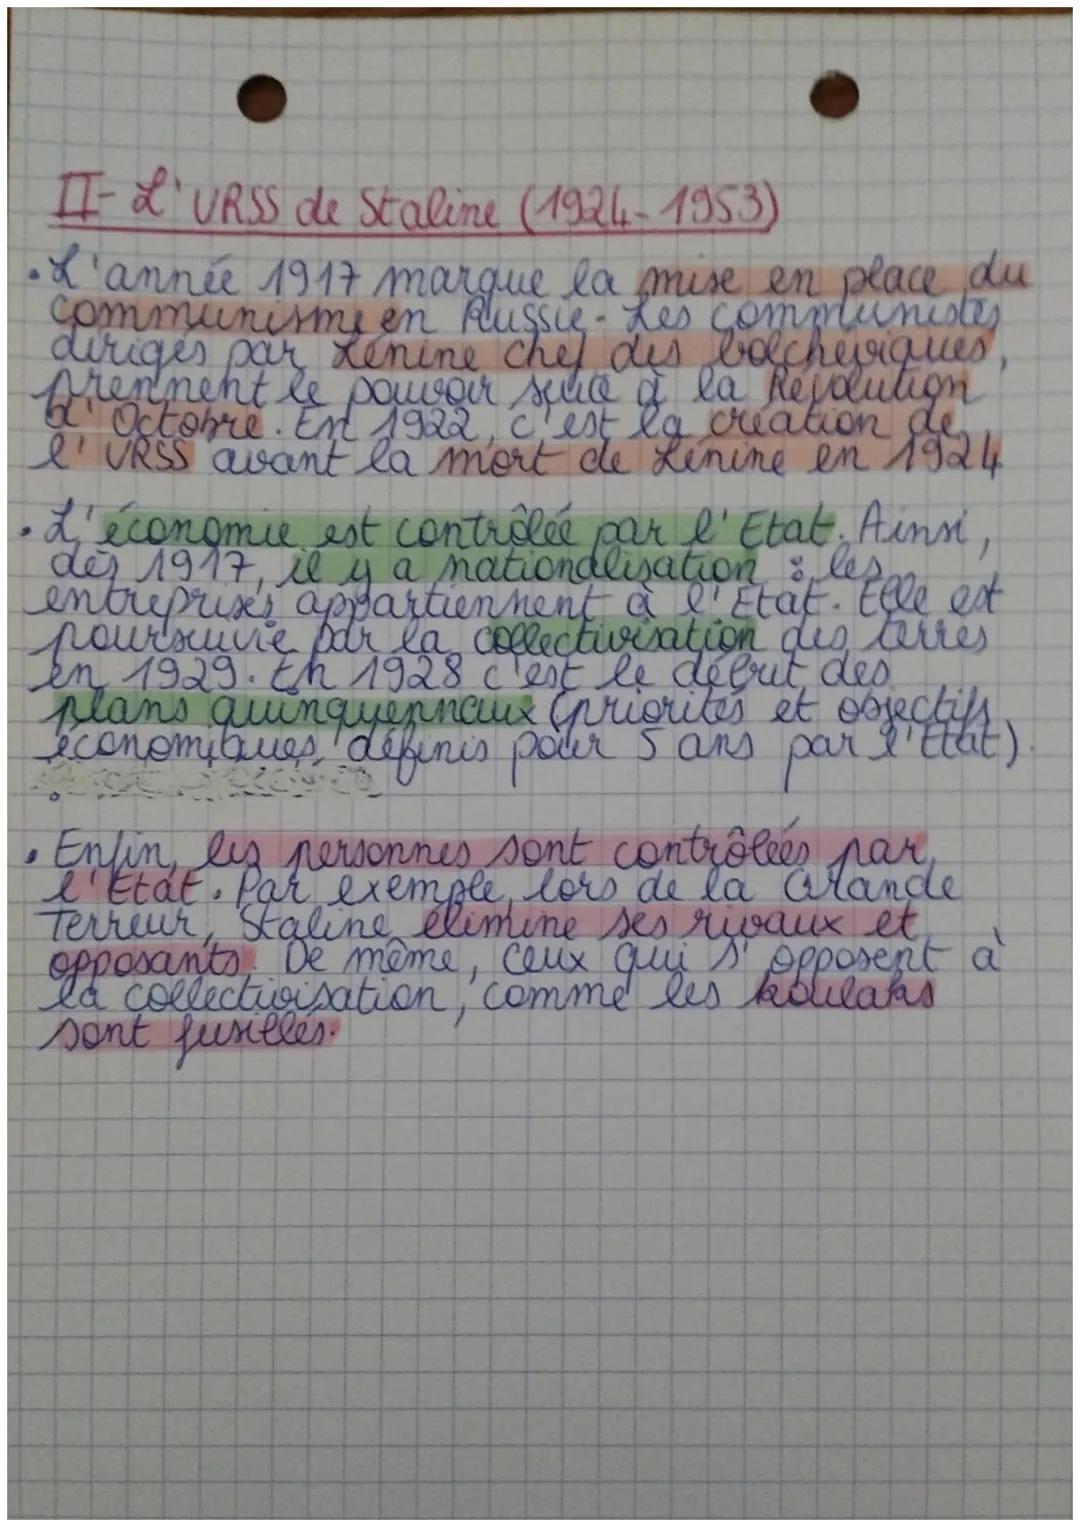 II- L'URSS de Staline (1924-1953)
• L'année 1917 marque la mise en place du
communisme en Russie. Les communistes
dirigés par Lénine chef des bolcheviques,
prennent le pouvoir suite à la Révolution
d'Octobre. En 1922, c'est la création de
l'URSS avant la mort de Lénine en 1924
• L'économie est contrôlée par l'Etat. Ainsi,
dès 1917, il y a nationalisation : les
entreprises appartiennent à l'Etat. Elle est
poursuivie par la collectivisation des terres
en 1929. En 1928 c'est le début des
plans quinquennaux (priorités et objectifs
économiques définis pour 5 ans par l'Etat).
• Enfin, les personnes sont contrôlées par
l'Etat. Par exemple, lors de la Grande
Terreur, Staline élimine ses rivaux et
opposants. De même, ceux qui s'opposent à
la collectivisation, comme les koulaks
sont fusillés.